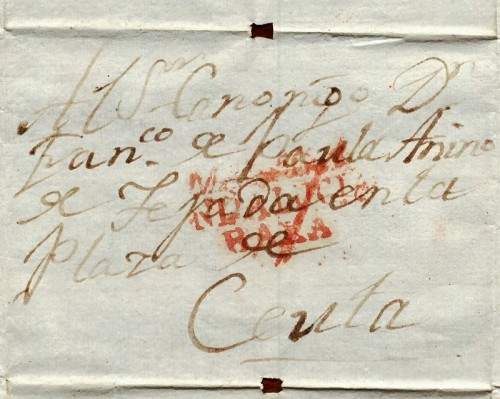 Al Sor Canonigo Dn
Fran.co de Paula Anino
de Tejada en la
Plaza de
Ceuta
BAXA